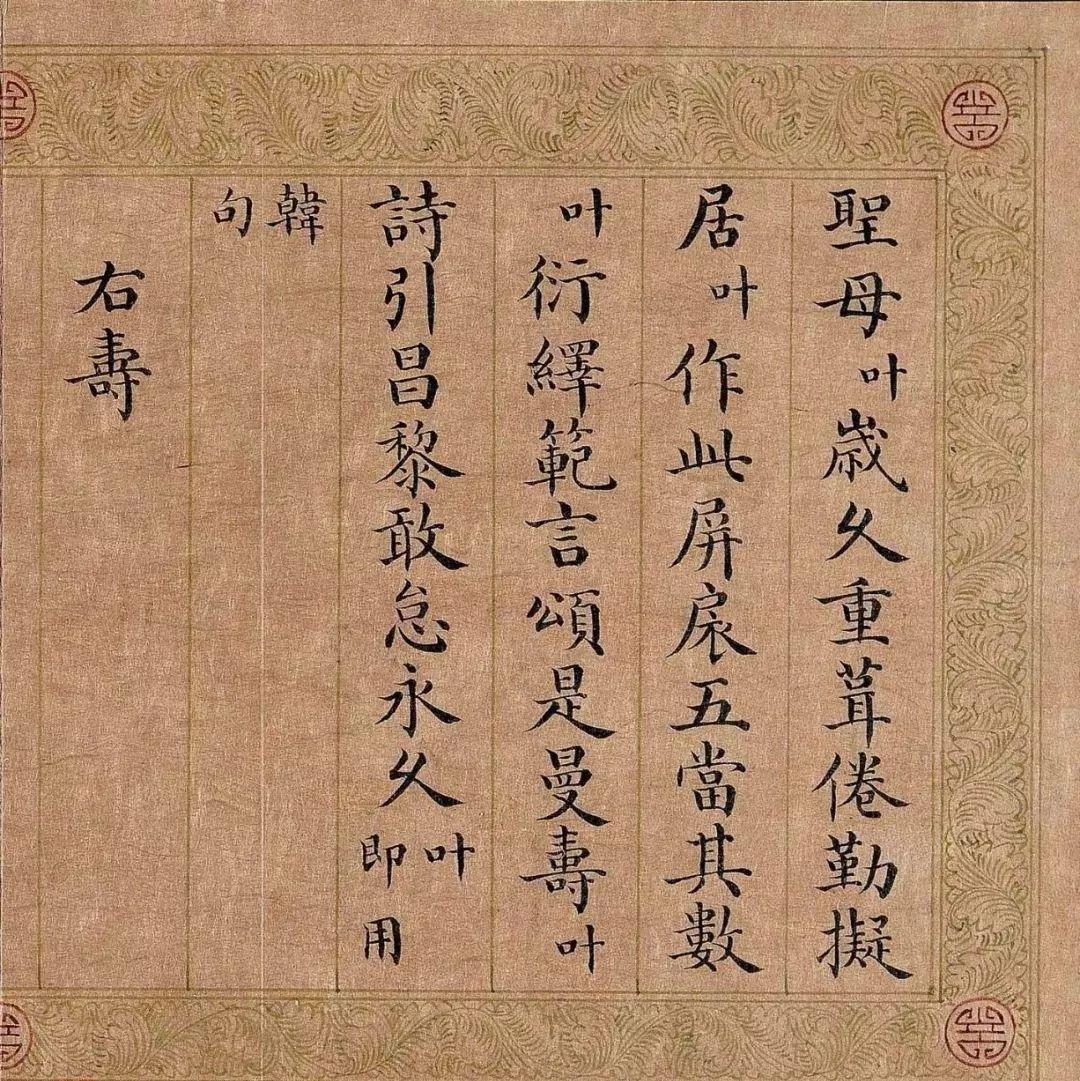 聖母叶歳久重葺倦勤擬
居叶作此屏扆五當其數
叶衍繹範言頌是曼壽叶
詩引昌黎敢怠永久叶即用
韓句
右壽